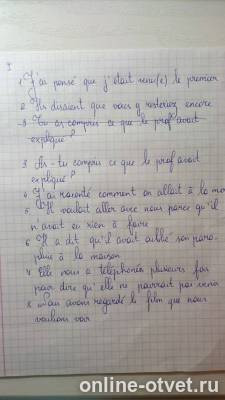 I
1 J'ai pensé que j'étais venu(e) le premier
2. Ils disaient que vous y resteriez encore
3 Tu as compris ce que le prof avait
expliqué?
3. As-tu compris ce que le prof avait
expliqué?
4. J'ai raconté comment on allait à la
5. Il voulait aller avec nous parce qu'il
n'avait eu rien à faire
6. Il a dit qu'il avait oublié son para-
pluie à la maison
7. Elle nous a téléphoné plusieurs fois
pour dire qu'elle ne pourrait pas venir
8. Nous avons regardé le film que nous
voulions voir
online-otvet.ru